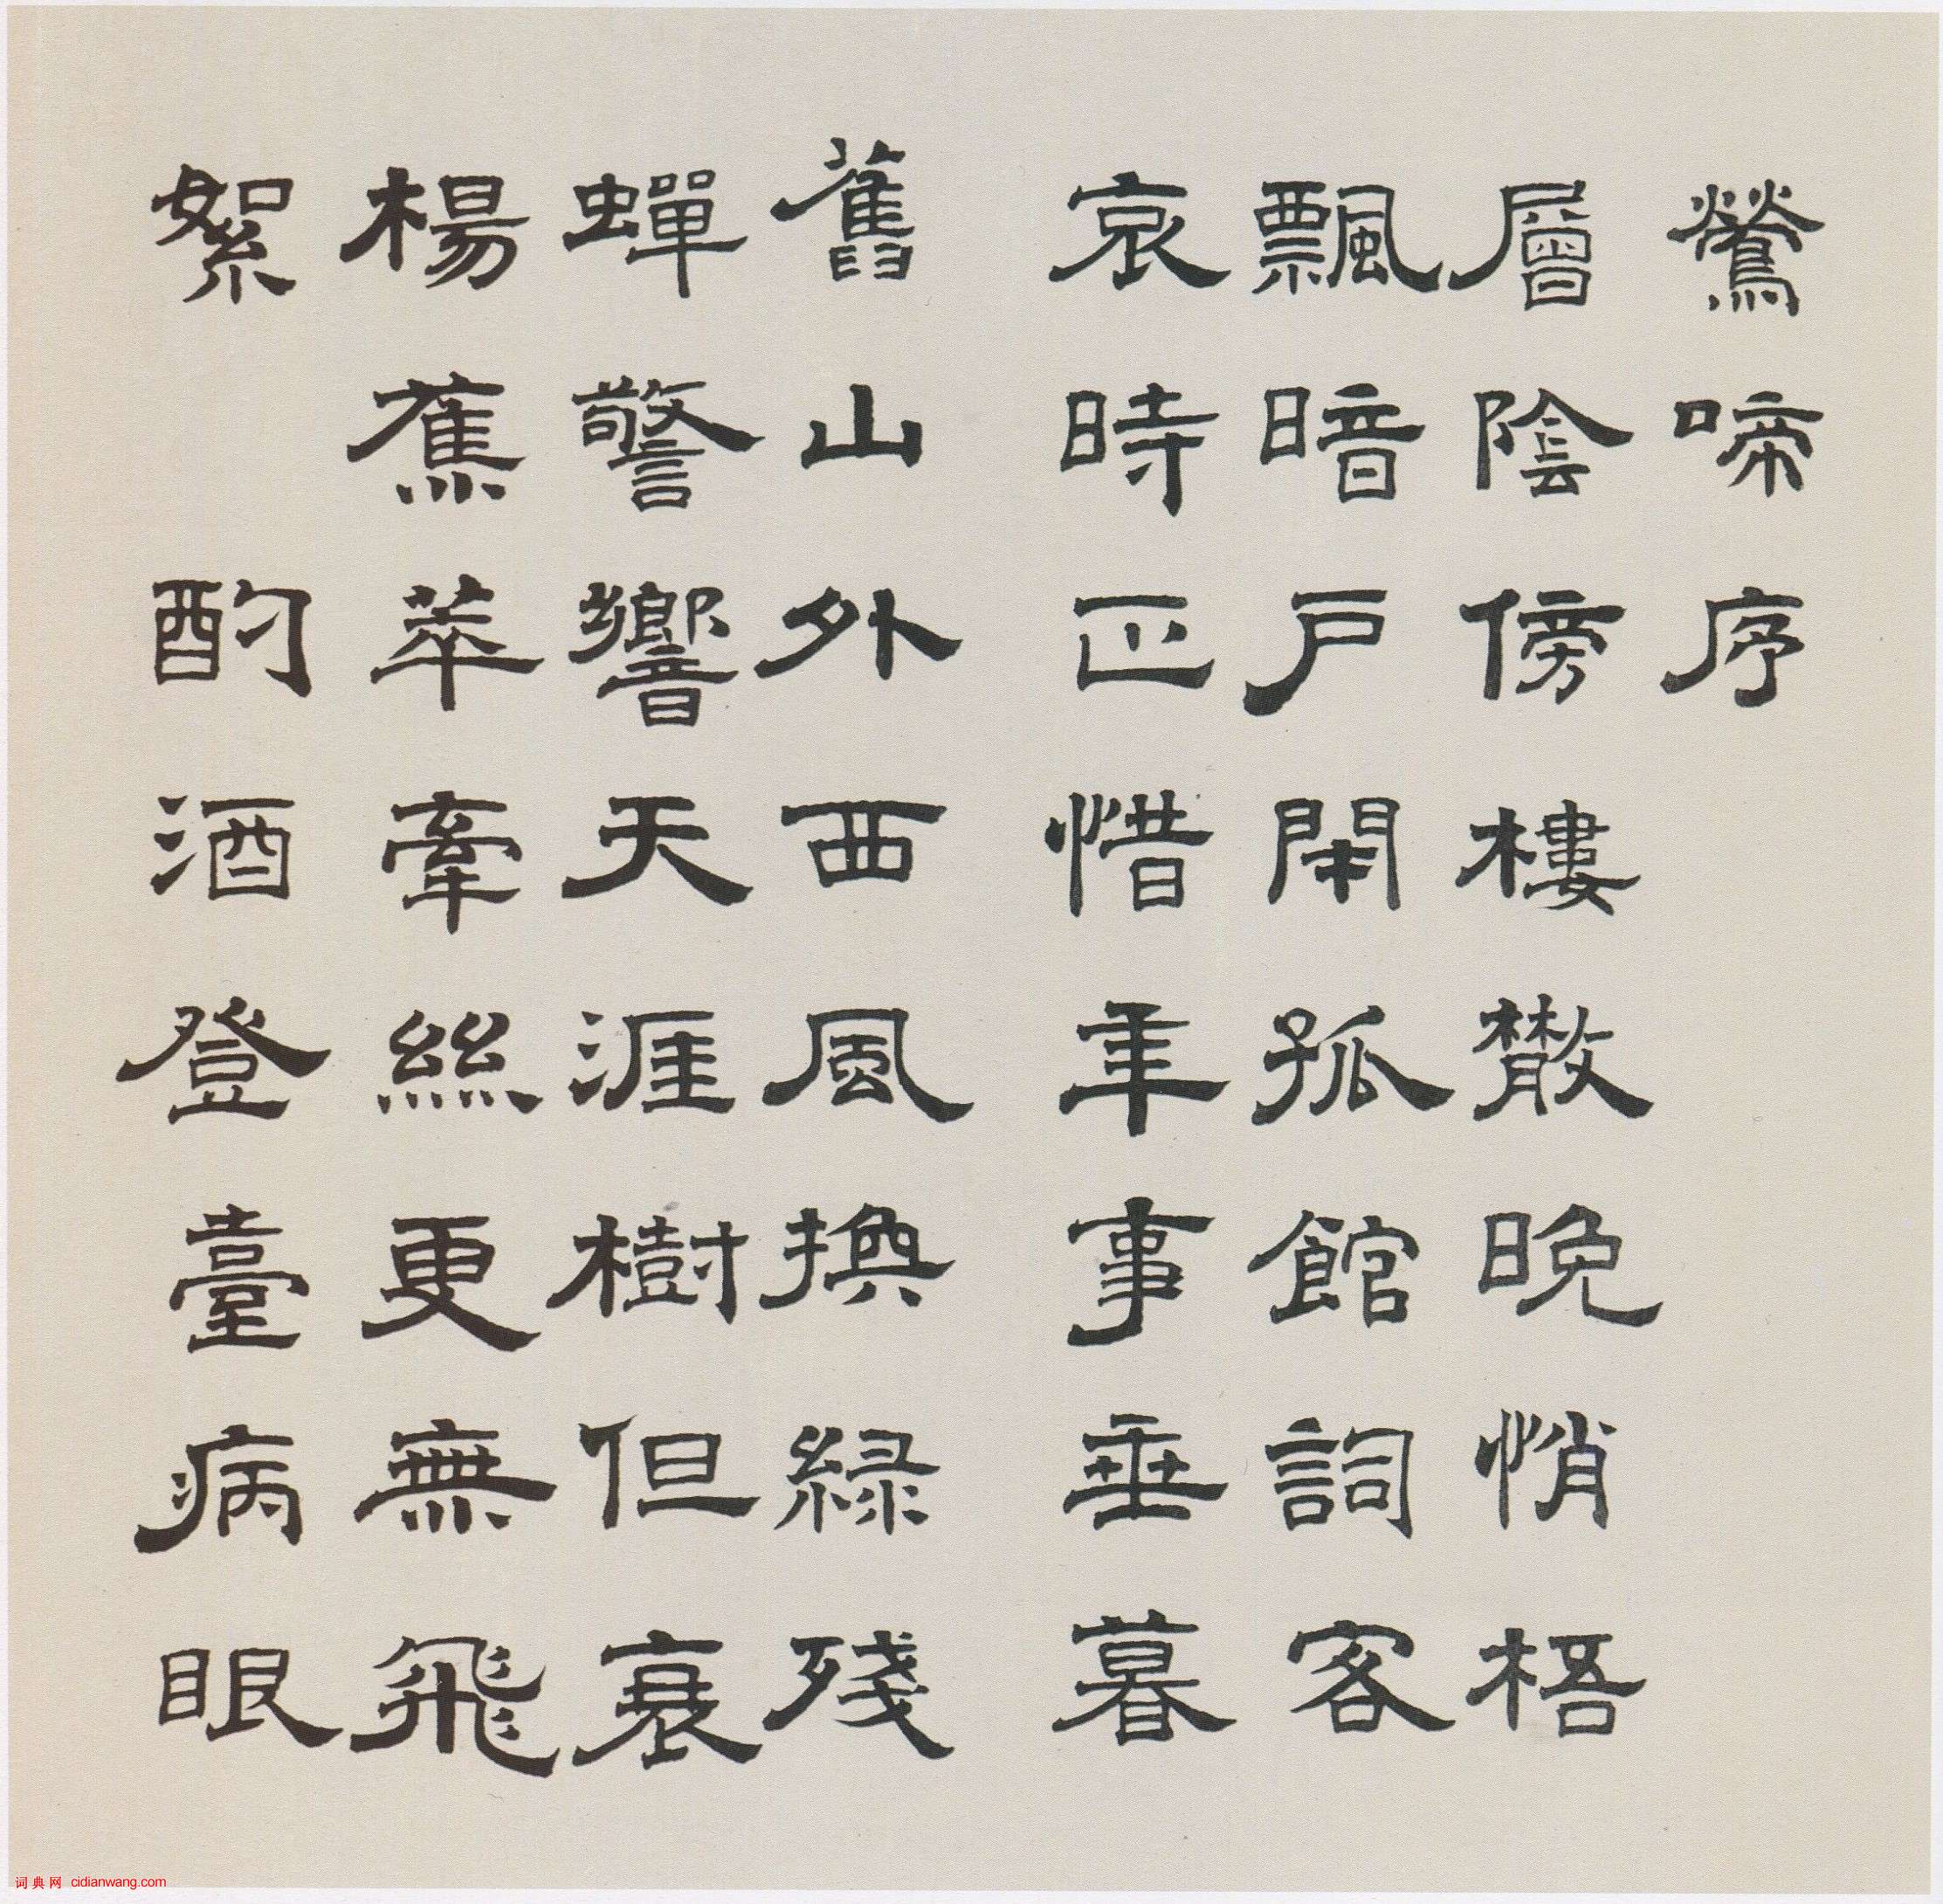 鶯啼序
層陰傍樓散晚悄梧
飄暗戶閉孤館詞客
哀時正惜年事垂暮
舊山外西風換綠殘
蟬警響天涯樹但衰
楊蕉萃牽絲更無飛
絮
酌酒登臺病眼
词典网 cidianwang.com